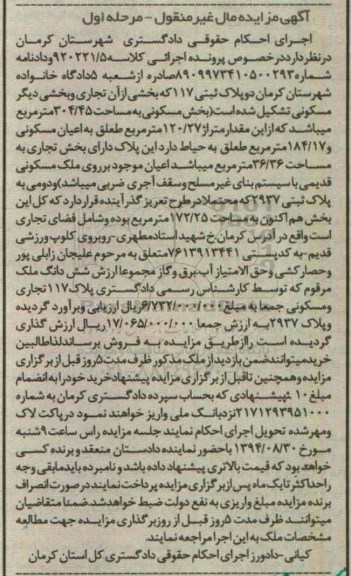 آگهی مزایده مال غیر منقول - مرحله اول
اجرای احکام حقوقی دادگستری شهرستان کرمان
در نظر دارد در خصوص پرونده اجرائی کلاسه ۹۲۰۲۲۱/۵ و دادنامه
شماره ۸۹۰۹۹۷۳۴۱۰۵۰۰۲۹۳ صادره از شعبه ۵ دادگاه خانواده
شهرستان کرمان دو پلاک ثبتی ۱۱۷ که بخشی از آن تجاری و بخشی دیگر
مسکونی تشکیل شده است (بخش مسکونی به مساحت ۳۰۴/۴۵ متر مربع
میباشد که از این مقدار متراژ ۱۲۰/۲۷ متر مربع طعلق به اعیان مسکونی
و ۱۸۴/۱۷ متر مربع طعلق به حیاط دارد این پلاک دارای بخش تجاری به
مساحت ۳۶/۳۶ متر مربع میباشد اعیان موجود بر روی ملک مسکونی
قدیمی با سیستم بنای غیر مسلح و سقف آجری ضربی میباشد) و دومی به
پلاک ثبتی ۲۹۳۷ که محتملا در طرح تعریض گذر آینده قرار دارد که کل این
بخش هم اکنون به مساحت ۱۷۲/۲۵ متر مربع بوده و شامل فضای تجاری
است واقع در آدرس کرمان خ شهید استاد مطهری - روبروی کلوپ ورزشی
قدیم - به کدپستی ۷۶۱۳۹۱۳۴۴۱ متعلق به مرحوم علیجان زابلی پور
و حصار کشی و حق الامتیاز آب، برق و گاز مجموعا ارزش شش دانگ ملک
مرقوم که توسط کارشناس رسمی دادگستری پلاک ۱۱۷ تجاری
ومسکونی جمعا به مبلغ ریال ارزیابی و برآورد گردیده
و پلاک ۲۹۳۷ به ارزش جمعا ۱۷/۰۶۵/۰۰۰/۰۰۰ ریال ارزش گذاری
گردیده است را از طریق مزایده به فروش برساند لذا طالبین
خرید میتوانند ضمن بازدید از ملک مذکور ظرف مدت ۵ روز قبل از برگزاری
مزایده و همچنین تا قبل از برگزاری مزایده پیشنهاد خرید خود را به انضمام
مبلغ ۱۰٪ پیشنهادی که بحساب سپرده دادگستری کرمان به شماره
۲۱۷۱۲۹۳۹۵۱۰۰۰ نزد بانک ملی واریز خواهند نمود در پاکت لاک
و مهر شده تحویل اجرای احکام نمایند جلسه مزایده راس ساعت ۹ شنبه
مورخ ۱۳۹۴/۰۸/۳۰ با حضور نماینده دادستان منعقد و برنده کسی
خواهد بود که قیمت بالاتری پیشنهاد داده باشد و نامبرده باید مابقی وجه
را حداکثر تا یک ماه پس از برگزاری مزایده پرداخت نمایند در صورت انصراف
برنده مزایده مبلغ واریزی به نفع دولت ضبط خواهد شد. ضمنا متقاضیان
میتوانند ظرف مدت ۵ روز قبل از روز برگذاری مزایده جهت مطالعه
مشخصات ملک به این اجرا مراجعه نمایند.
کیانی - دادورز اجرای احکام حقوقی دادگستری کل استان کرمان